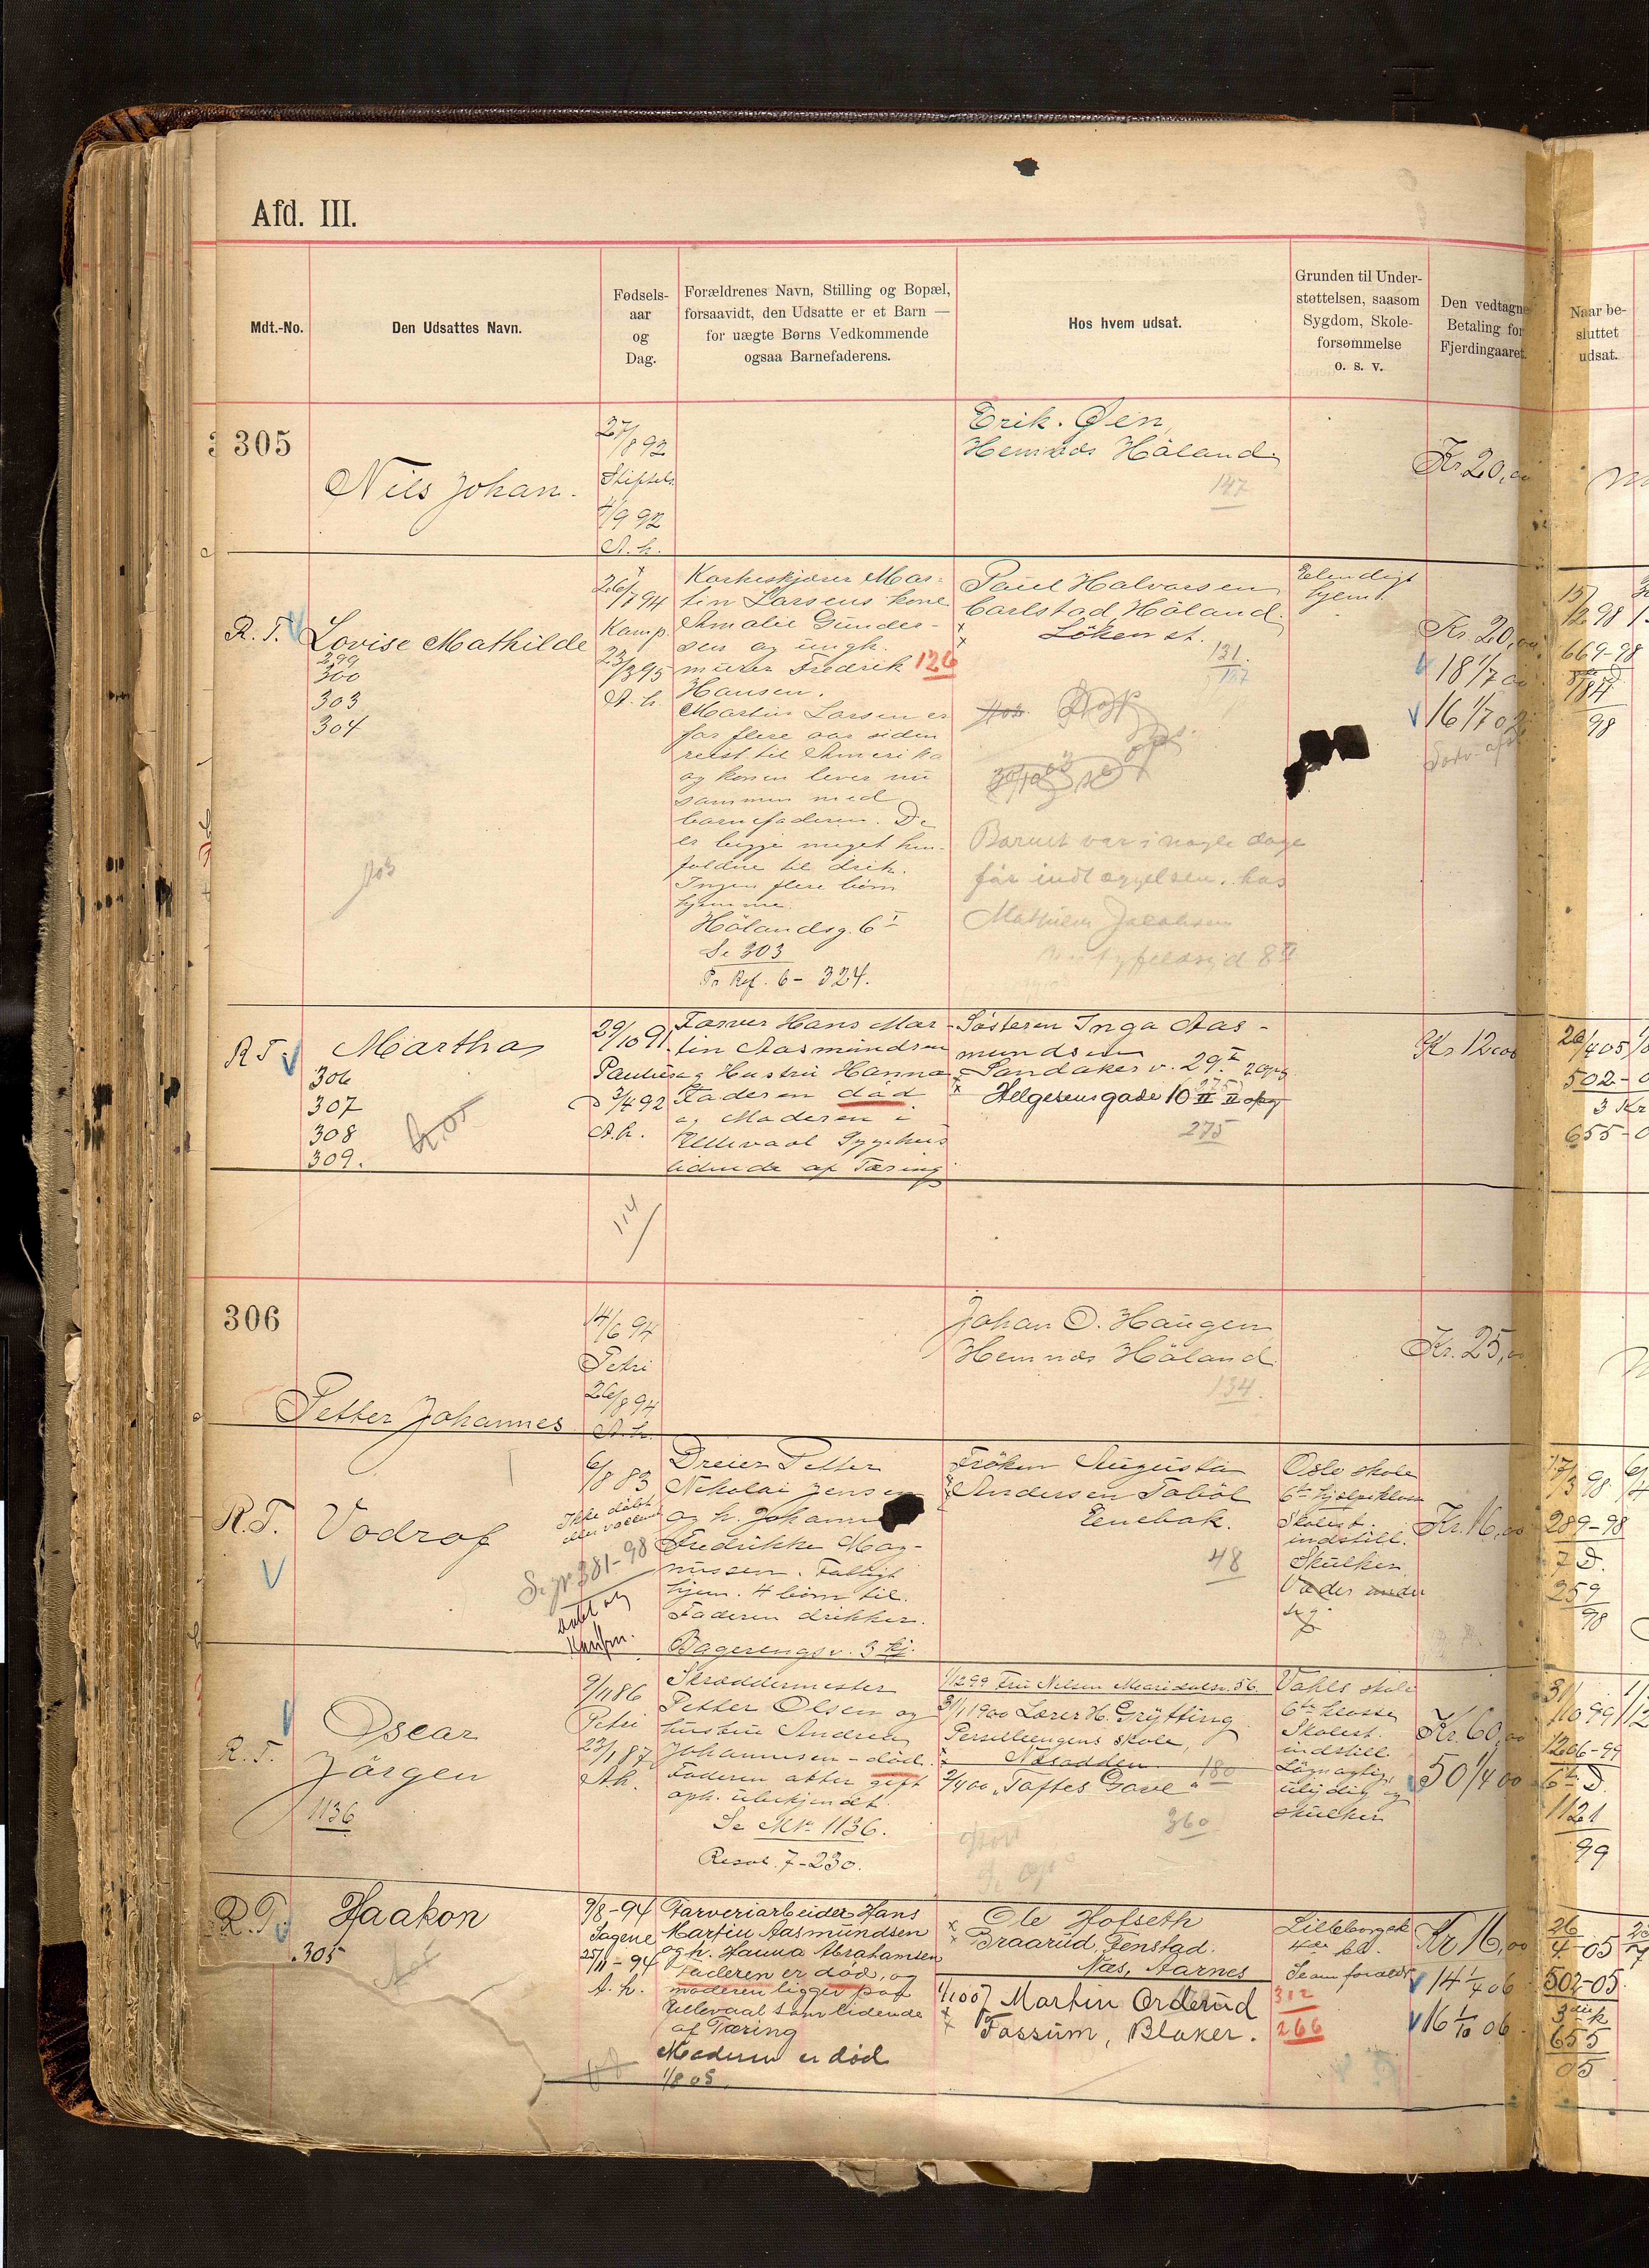 Afd. III.
Mdt.-No.
Den Udsattes Navn.
Fødsels-
aar
og
Dag.
Forældrenes Navn, Stilling og Bopæl,
forsaavidt, den Udsatte er et Barn —
for uægte Børns Vedkommende
ogsaa Barnefaderens.
Hos hvem udsat.
Grunden til Under-
støttelsen, saasom
Sygdom, Skole-
forsømmelse
o. s. v.
Den vedtagne
Betaling for
Fjerdingaaret.
Naar be-
sluttet
udsat.
305
Nils Johan.
27/8 92
4/9 92
A. h.
Erik Øien
Hemnæs Höland
147
Kr. 20,00
R. T.
Lovise Mathilde
299
300
303
304
26/7 94
Kamp.
23/3 95
A. h.
Mar-
tin Larsens kone
Amalie Gunder-
sen og ungk.
murer Fredrik 126
Hansen.
Martin Larsen er
for flere aar siden
reist til Amerika
og konen lever nu
sammen med
barnefaderen. De
er begge meget hen-
faldne til drik.
Ingen flere börn
hjemme.
Hölandsg. 6 I
Se 303
Pr Ref. 6 - 324.
Paul Halvorsen
Carlstad, Höland.
Löken st.
131.
Barnet var i nogle dage
før indlæggelsen hos
Jacobsen
Elendigt
hjem.
Kr. 20,00
18 1/7 00
16 1/7 02
15/12 98
669-98
98
R. T.
Martha
306
307
308
309.
29/10 91
Paulus
3/4 92
A. h.
Farver Hans Mar-
tin Aasmundsen
og Hustru Hanna
Faderen död
og Moderen i
Ullevaal Sygehus
lidende af Tæring
Søsteren Inga Aas-
mundsen
Sandakerv. 29 I
Helgesensgade 10 II
275
Kr 12,00
26/4 05
502-0
3 Kr
655-0
114
306
Petter Johannes
14/6 94
Petri
26/8 94
A. h.
Johan O. Haugen
Hemnæs Höland
134.
Kr. 25,00
R. T.
Vodrof
6/8 83
Ikke döbt
Se jr 381-98
döbt og
Konfirm.
Dreier Petter
Nikolai Jensen
og h. Johanne
Fredrikke Mag-
nussen. Fattigt
hjem. 4 börn til.
Faderen drikker.
Bagerengsv. 3 kj.
Fröken Augusta
Andersen Taböl
Enebak.
48
Oslo skole
6te hjelpeklasse
Skolest.
indstill.
Skulker
Kr. 16,00
17/3 98
289-98
7 D.
259
98
R. T.
Oscar
Jörgen
1136
9/11 86
Petri
23/1 87
Ah.
Skræddermester
Petter Olsen og
hustru Andrea
Johannesen - död.
Faderen atter gift
oph. ubekjendt.
Se Mr. 1136.
Resol. 7-230.
1/12 99 Fru Nilsen Maridalsv. 56.
3/1 1900 Lærer H. Grytting
Persilleengens skole,
Nesodden 180
2/4 00 "Toftes Gave"
360
Vahls skole
6te klasse
Skolest.
indstill.
Lögnagtig,
ulydig og
skulker
Kr. 60,00
50 1/4 00
31/10 99
1206-99
6te D.
1121
99
R. T.
Haakon
305
9/8-94
Sagene
25/11-94
A. h.
Farveriarbeider Hans
Martin Aasmundsen
og h. Hanna Abrahamsen
Faderen er död, og
moderen ligger paa
Ullevaal som lidende
af Tæring
Moderen er död
1/8 05.
Ole Hofseth
Braarud, Fenstad.
Næs, Aarnes
1/10 07 Martin Orderud
Fossum, Blaker.
Lilleborgsk
4de kl.
312
266
Kr 16,00
14 1/4 06
16 1/10 06.
26/4-05
502-05.
655
05